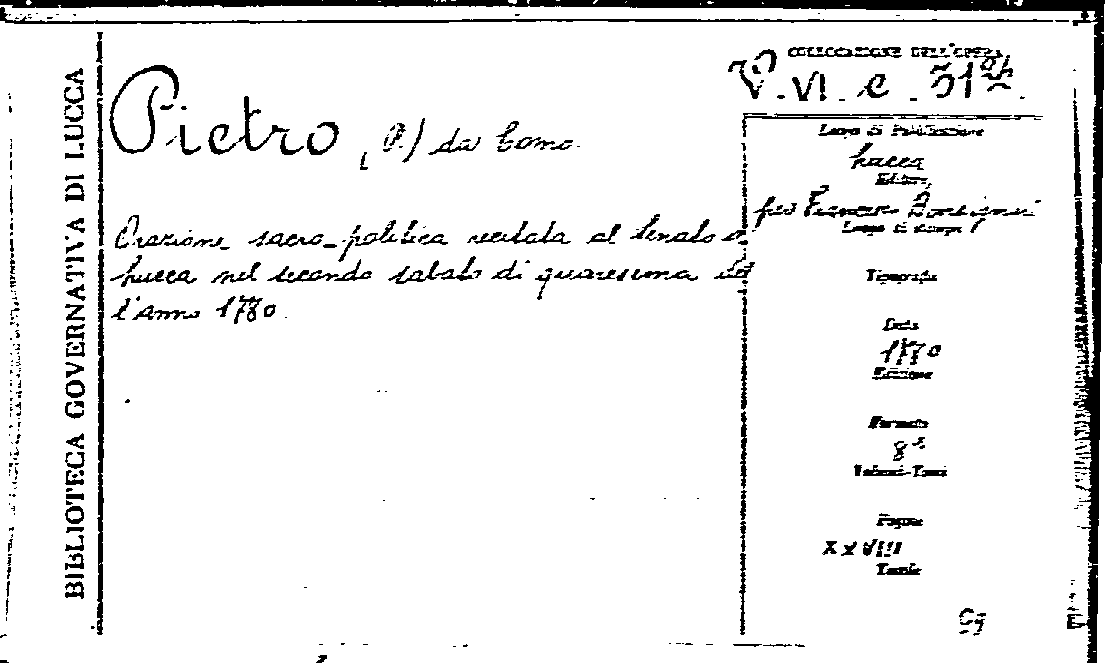 BIBLIOTECA GOVERNATIVA DI LUCCA
Pietro (P.) da Como.
Orazione sacro-politica recitata al Senato di
Lucca nel secondo sabato di quaresima del
l'Anno 1780.
COLLOCAZIONE DELL'OPERA
V. VI. C. 31
Luogo di Pubblicazione
Lucca
Editore
per Francesco Bonsignori
Luogo di stampa
Tipografia
Data
1780
Edizione
Formato
8°
Volumi-Tomi
Pagine
XXVIII
Tavole